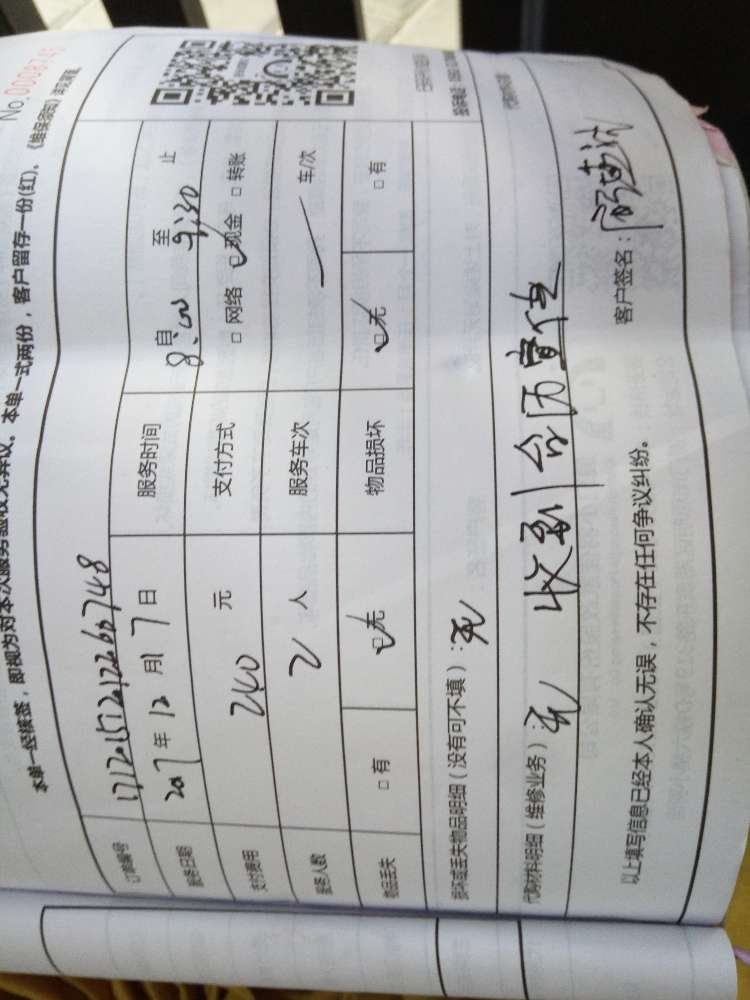 No.0008745
本单一经核签，即视为对本次服务验收无异议。本单一式两份，客户留存一份(红)，《维保须知》
订单编号
服务日期 2017年12月17日 服务时间 自8:00至9:30止
支付费用 240元 支付方式 □网络 ☑现金 □转账
服务人数 2人 服务车次 车/次
物品丢失 □有 ☑无 物品损坏 ☑无 □有
损坏或丢失物品明细（没有可不填）：无
代购材料明细（维修业务）：无 收到
以上填写信息已经本人确认无误，不存在任何争议纠纷。
客户签名：